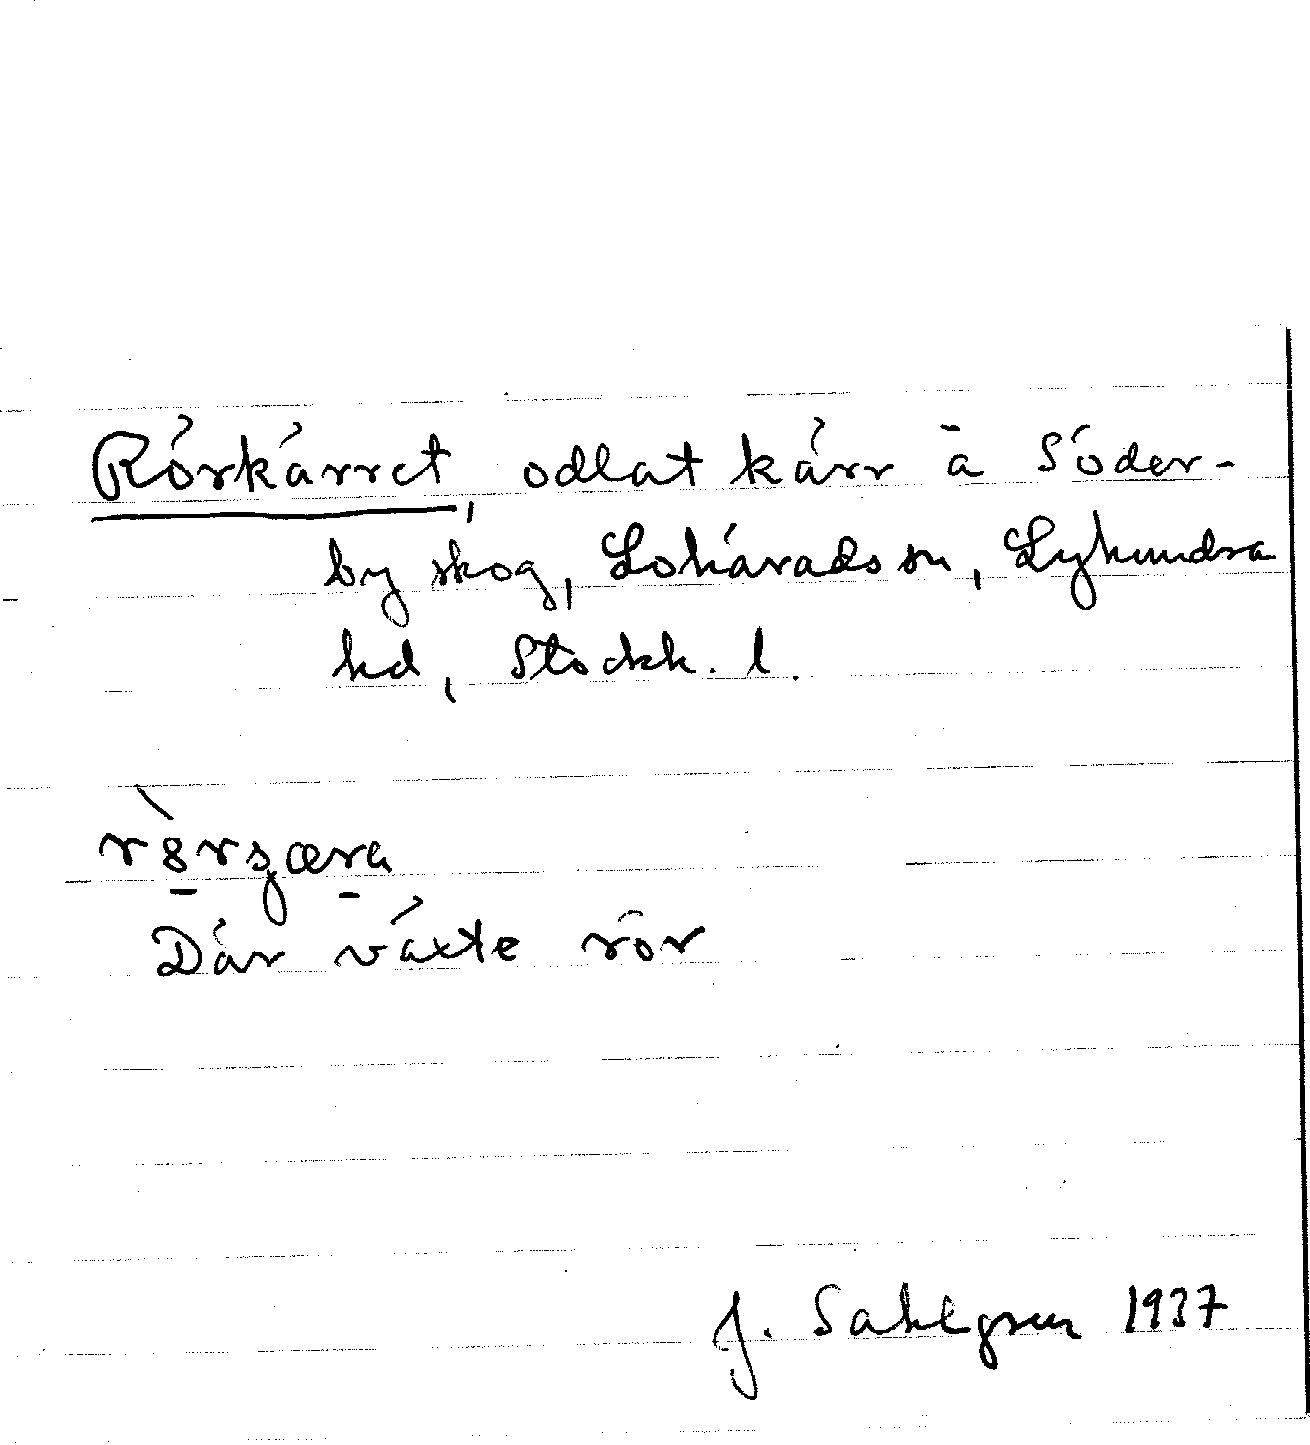 Rörkärret, odlat kärr å Söder-
by skog, Lohärads sn, Lyhundra
hd, Stockh. l.
Där växte rör
J. Sahlgren 1937